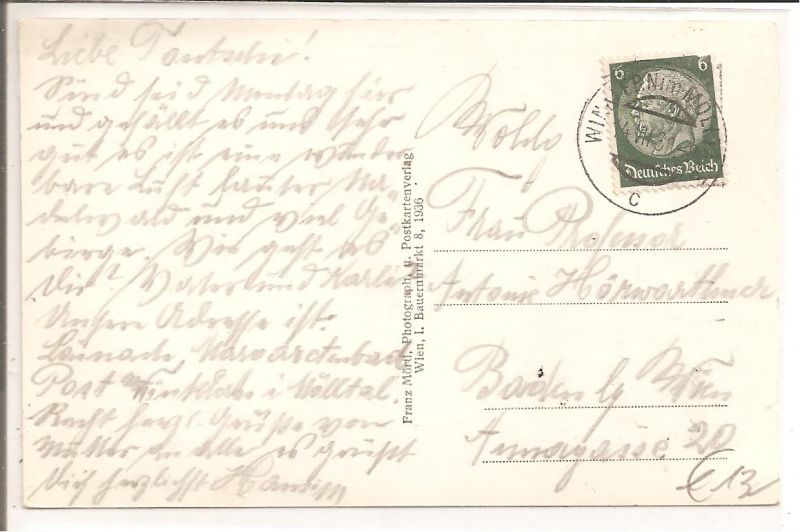 Liebe Tantschi!
Sind seid Montag hier
und gefällt es uns sehr
gut es ist eine wunder
bare Luft lauter Na
delwald und viel Ge
birge. Wie geht es
Dir? Vater und Karli
Unsere Adresse ist:
Margaretenbad
Post Winklern i Mölltal.
Recht herzl. Grüße von
Mutter an alle es grüßt
Dich herzlichst
Franz Mörtl, Photograph. u. Postkartenverlag
Wien, I. Bauernmarkt 8, 1936
6 6
Deutsches Reich
WINKLERN im MÖLLTAL
c
Frau Professor
Antonie
Baden b/ Wien
20